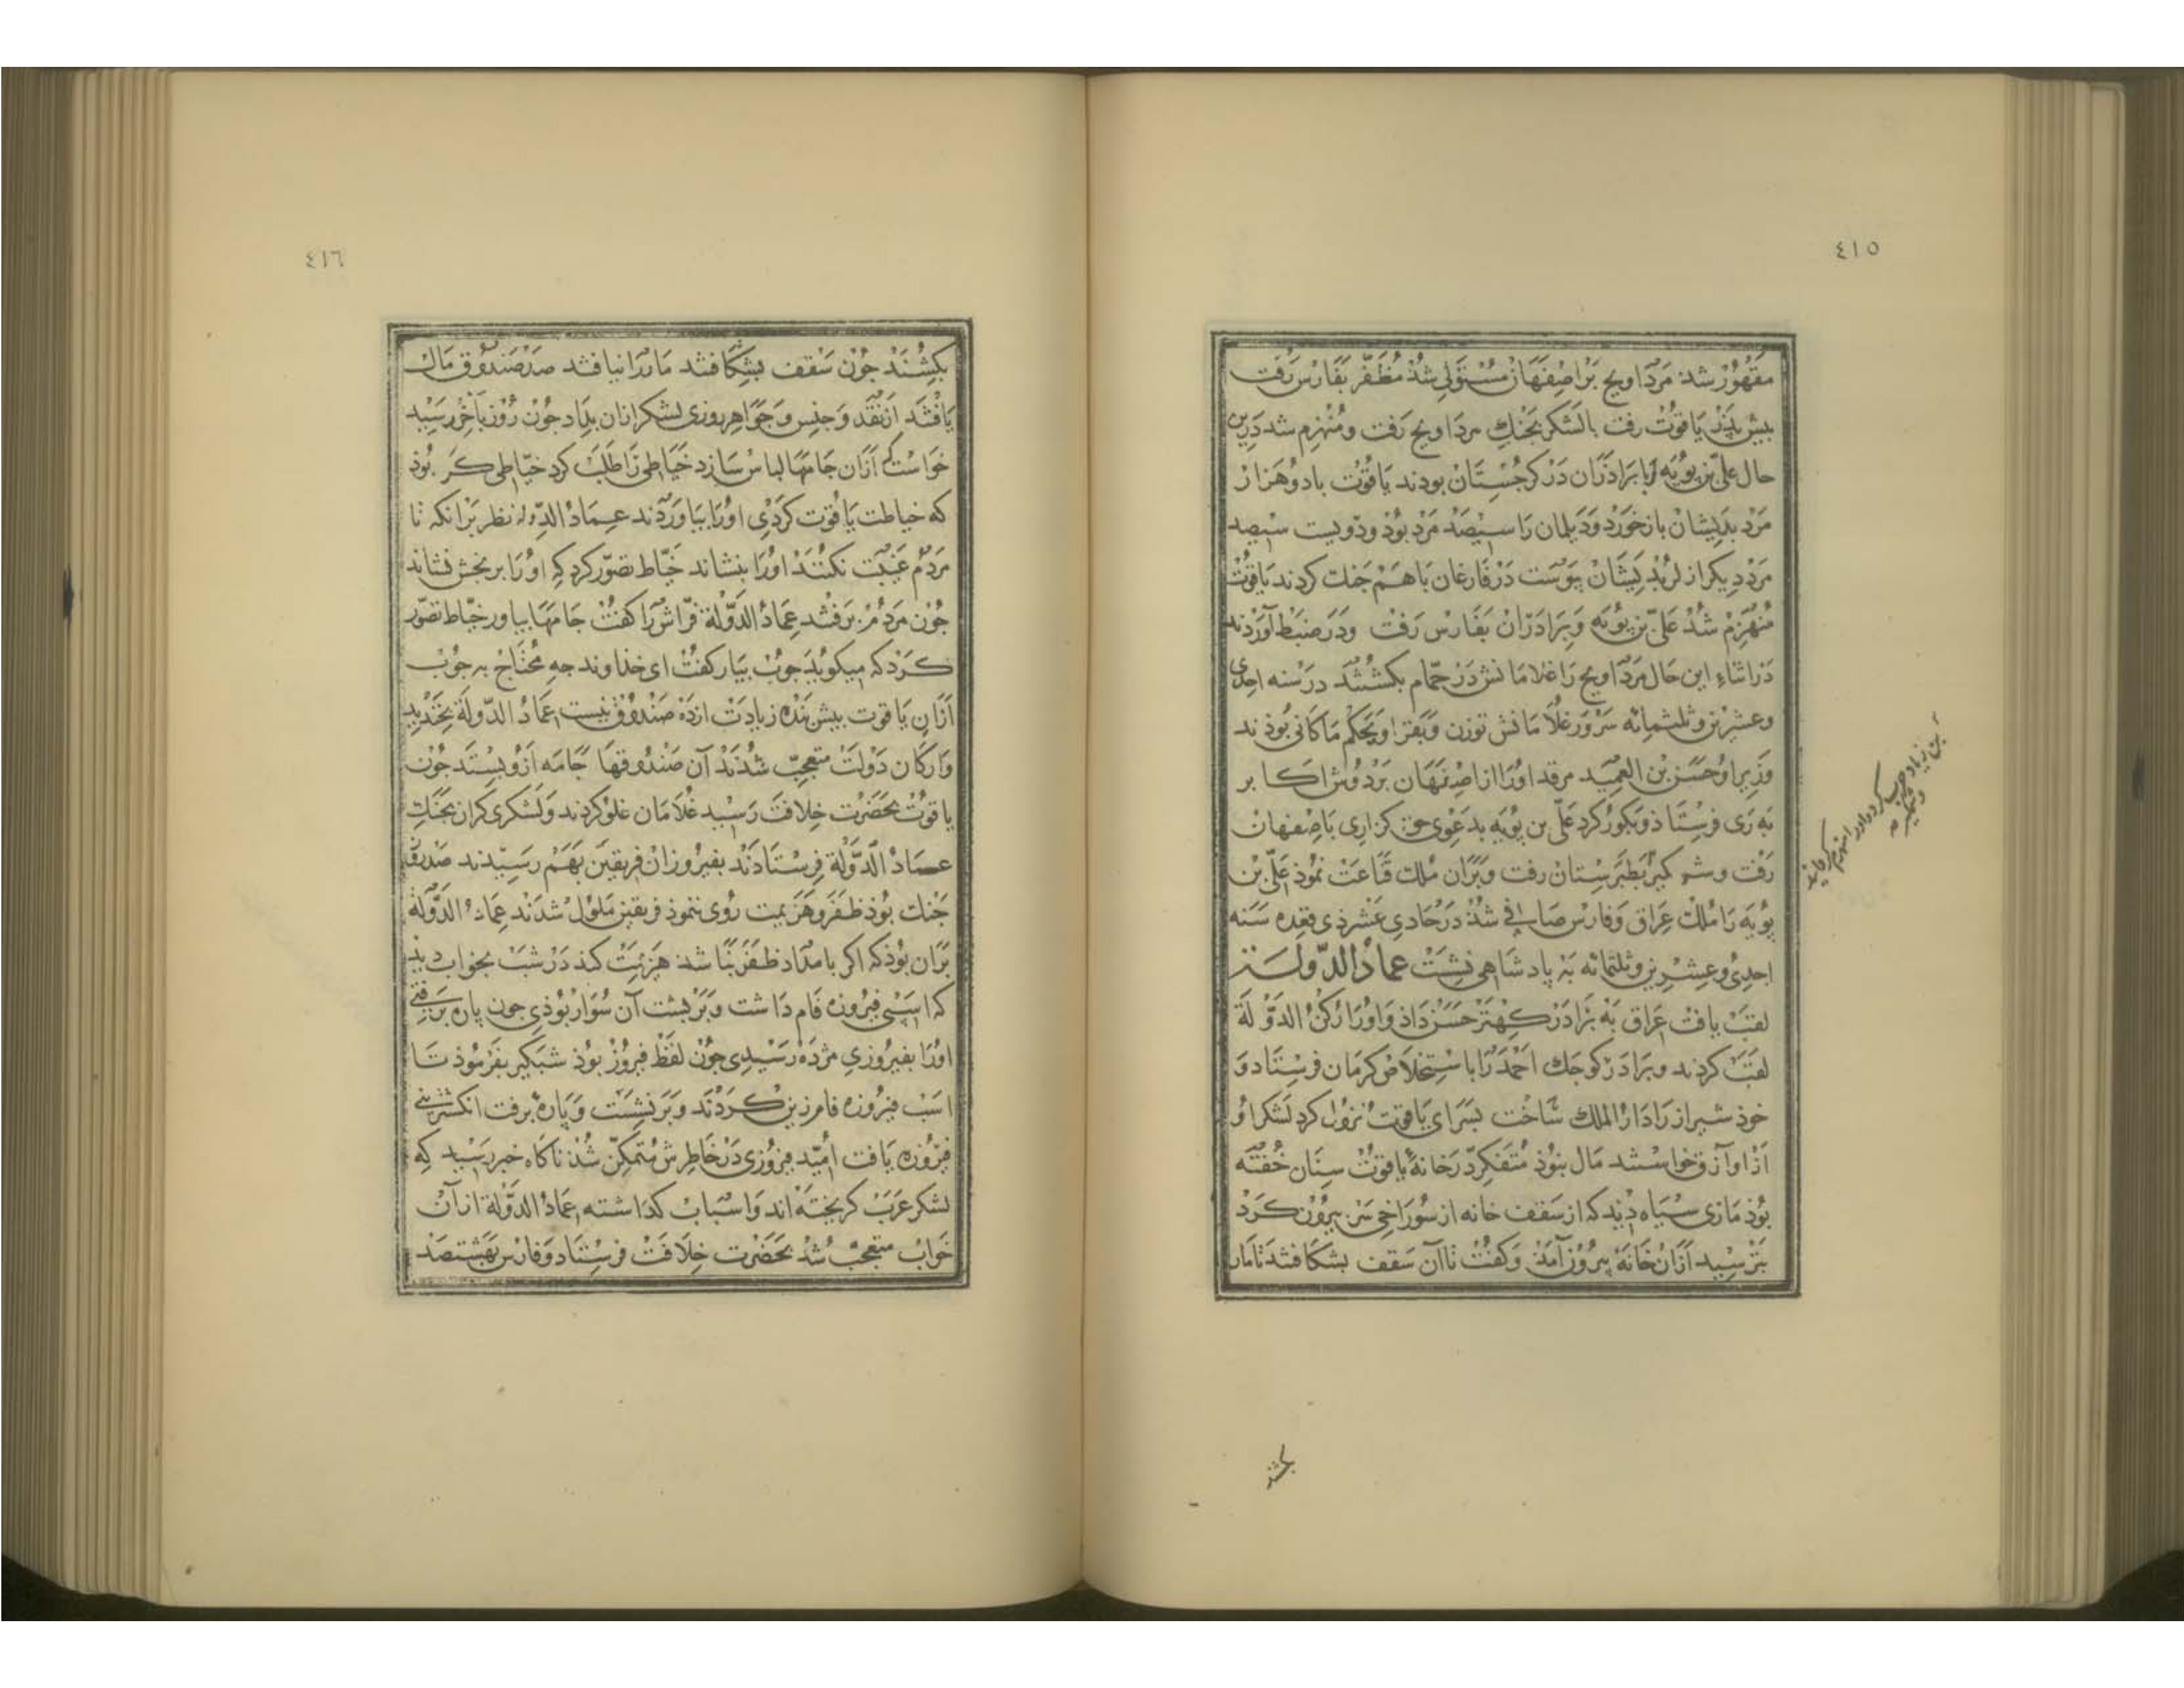 ٤١٥
مقهور شد مرداویج بر اصفهان مستولی شد مظفر بفارس رفت
بیش بدر یاقوت رفت با لشکر بجنك مرداویج رفت و منهزم شد درین
حال علی بن بویه با براذران در کرجستان بودند یاقوت با دو هزار
مرد بدیشان باز خورد و دیلمان را سیصد مرد بود و دویست سیصد
مرد دیکر از لر بدیشان بیوست در قارغان با هم جنك کردند یاقوت
منهزم شد علی بن بویه و برادران بفارس رفت و در ضبط آوردند
در اثناء این حال مرداویج را غلامانش در حمام بکشتند در سنه احدی
وعشرین وثلثمائه سرور غلامانش توزن و بغرا و بحکم ماکانی بوذند
وزیر او حسن بن العمید مرقد اورا از اصفهان بر دوش اکابر
به ری فرستاذ و بکور کرد علی بن بویه بدعوی حق کزاری باصفهان
رفت و شمکیر بطبرستان رفت و بران ملك قناعت نموذ علی بن
بویه را ملك عراق وفارس صافی شد در حادی عشر ذی قعده سنه
احدی وعشرین وثلثمائه به پادشاهی نشست عماد الدولة
لقب یافت عراق به براذر کهتر حسن داذ و اورا رکن الدولة
لقب کردند و براذر کوجك احمد را باستخلاص کرمان فرستاد و
خوذ شیراز را دار الملك ساخت بسرای یاقوت نزول کرد لشکر او
از او آزوق خواستند مال نبوذ متفکر در خانهٔ یاقوت ستان خفته
بوذ ماری سیاه دید که از سقف خانه از سوراخی سر بیرون کرد
بترسید ازان خانه بیرون آمد و کفت تا آن سقف بشکافند تا مار
بن زیاد حرب کرد و اورا منهزم کردانید
وشمکیر
بکشند
٤١٦
بکشند جون سقف بشکافتند مار را نیافتند صد صندوق مال
یافتند از نقد و جنس و جواهر روزی لشکر ازان بداد جون روز بآخر رسید
خواست که ازان جامها لباس سازد خیاطی را طلب کرد خیاطی کر بوذ
که خیاطت یاقوت کردی اورا بیاوردند عماد الدولة نظر بر انکه تا
مردم غیبت نکنند اورا بنشاند خیاط تصور کرد که اورا برنجش نشاند
جون مردم برفتند عماد الدولة فراش را کفت جامها بیاور خیاط تصور
کرد که میکوید جوب بیار کفت ای خذاوند جه محتاج به جوب
ازان یاقوت بیش بنده زیادت از ده صندوق نیست عماد الدولة بخندید
و ارکان دولت متعجب شدند آن صندوقها جامه ازو بستد جون
یاقوت بحضرت خلافت رسید غلامان غلو کردند و لشکری کران بجنك
عماد الدولة فرستادند بفیروزان فریقین بهم رسیدند
جنك بوذ ظفر و هزیمت روی ننموذ فریقین ملول شدند عماد الدولة
بران بوذ که اکر بامداد ظفر نباشد هزیمت کند در شب بخواب دید
که اسبی فیروزه فام داشت و بر بشت آن سوار بوذی جون پاره برفتی
اورا بفیروزی مژده رسیدی جون لفظ فیروز بوذ شبکیر بفرموذ تا
اسب فیروزه فام زین کردند و بر نشست و پارهٔ برفت انکشترینی
فیروزه یافت امید فیروزی در خاطرش متمکن شد ناکاه خبر رسید که
لشکر عرب کریخته اند و اسباب کذاشته عماد الدولة از آن
خواب متعجب شد بحضرت خلافت فرستاد و فارس بهشتصد